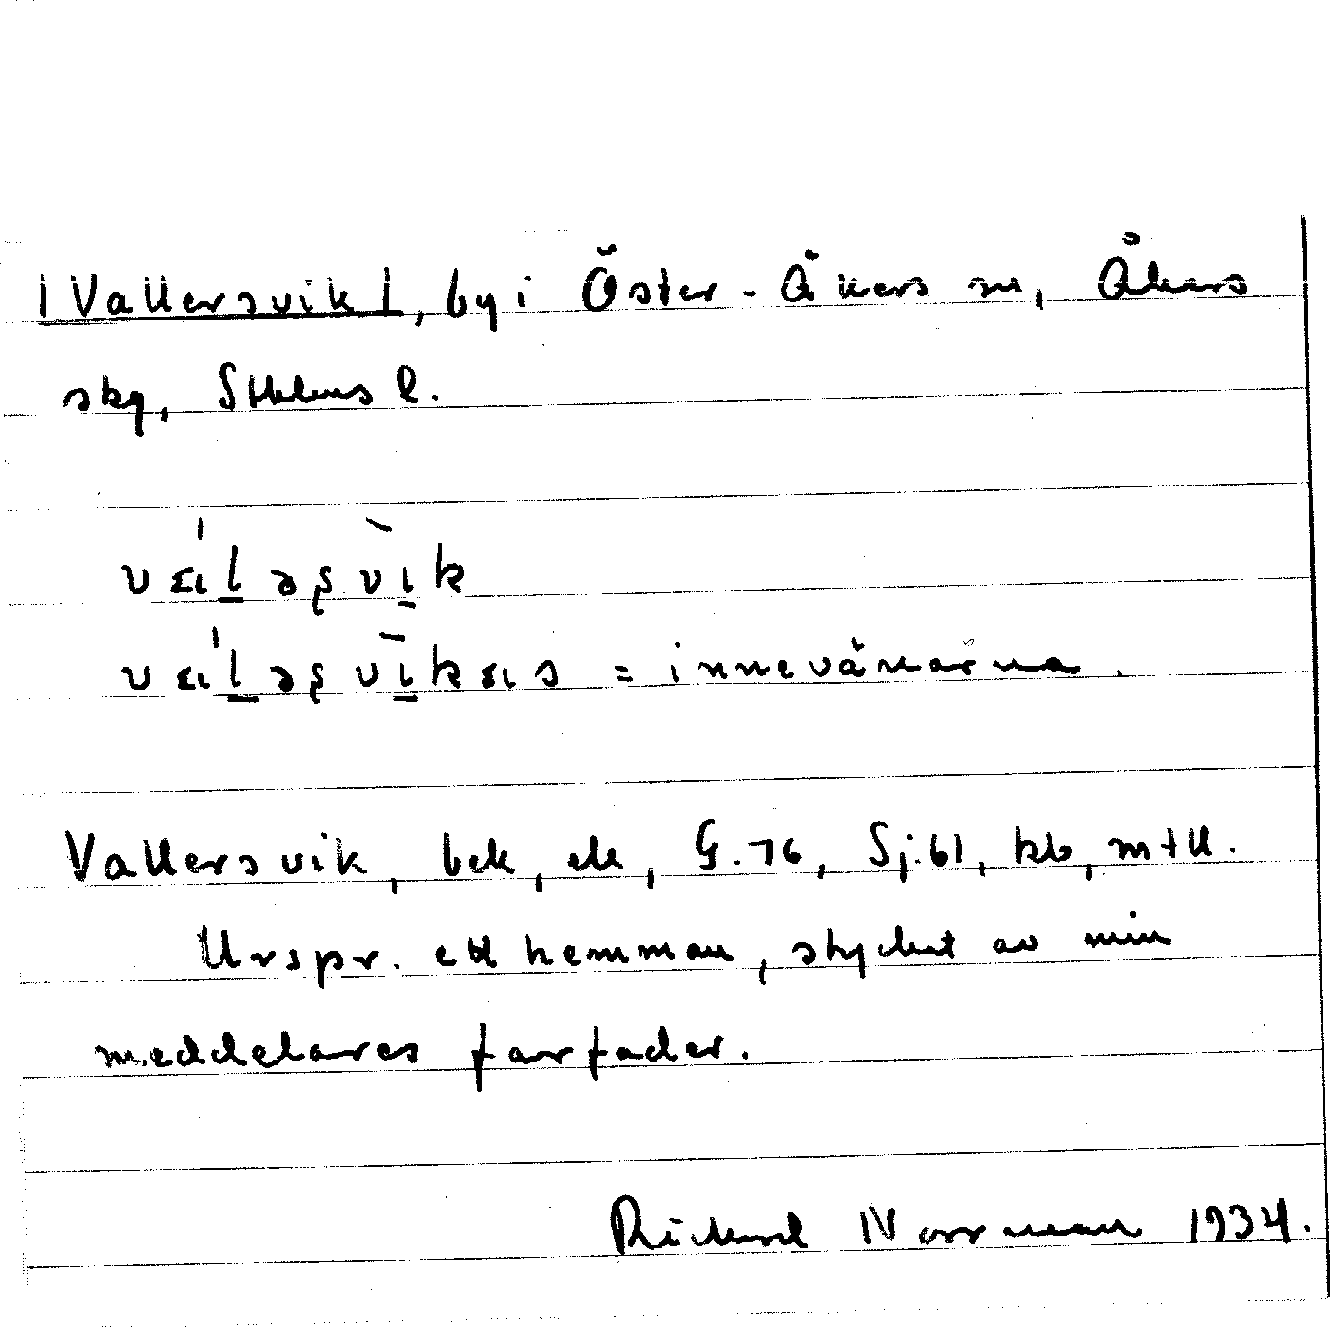 |Vallersvik|, by i Öster-Åkers sn, Åkers
skg, Sthlms l.
= innevånarna.
Vallersvik, bek, ek, G.76, Sj.61, kb, mtl.
Urspr. ett hemman, stycket av min
meddelares farfader.
Rickard Norrman 1934.